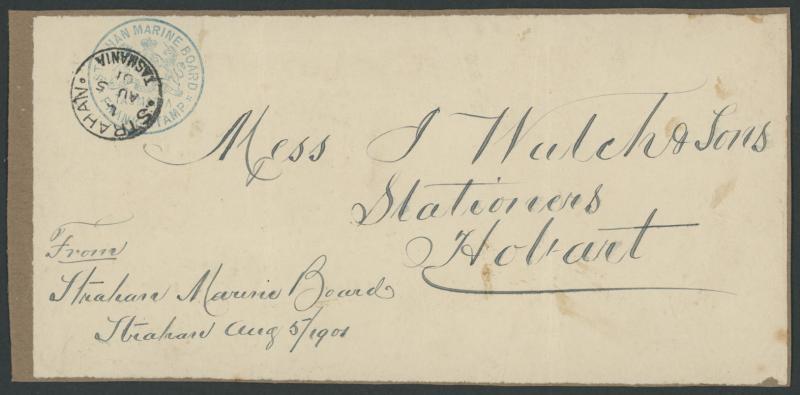 STRAHAN MARINE BOARD
STAMP
STRAHAN
AU 5
01
TASMANIA
Mess J Walch & Sons
Stationers
Hobart
From
Strahan Marine Board
Strahan Aug 5/1901